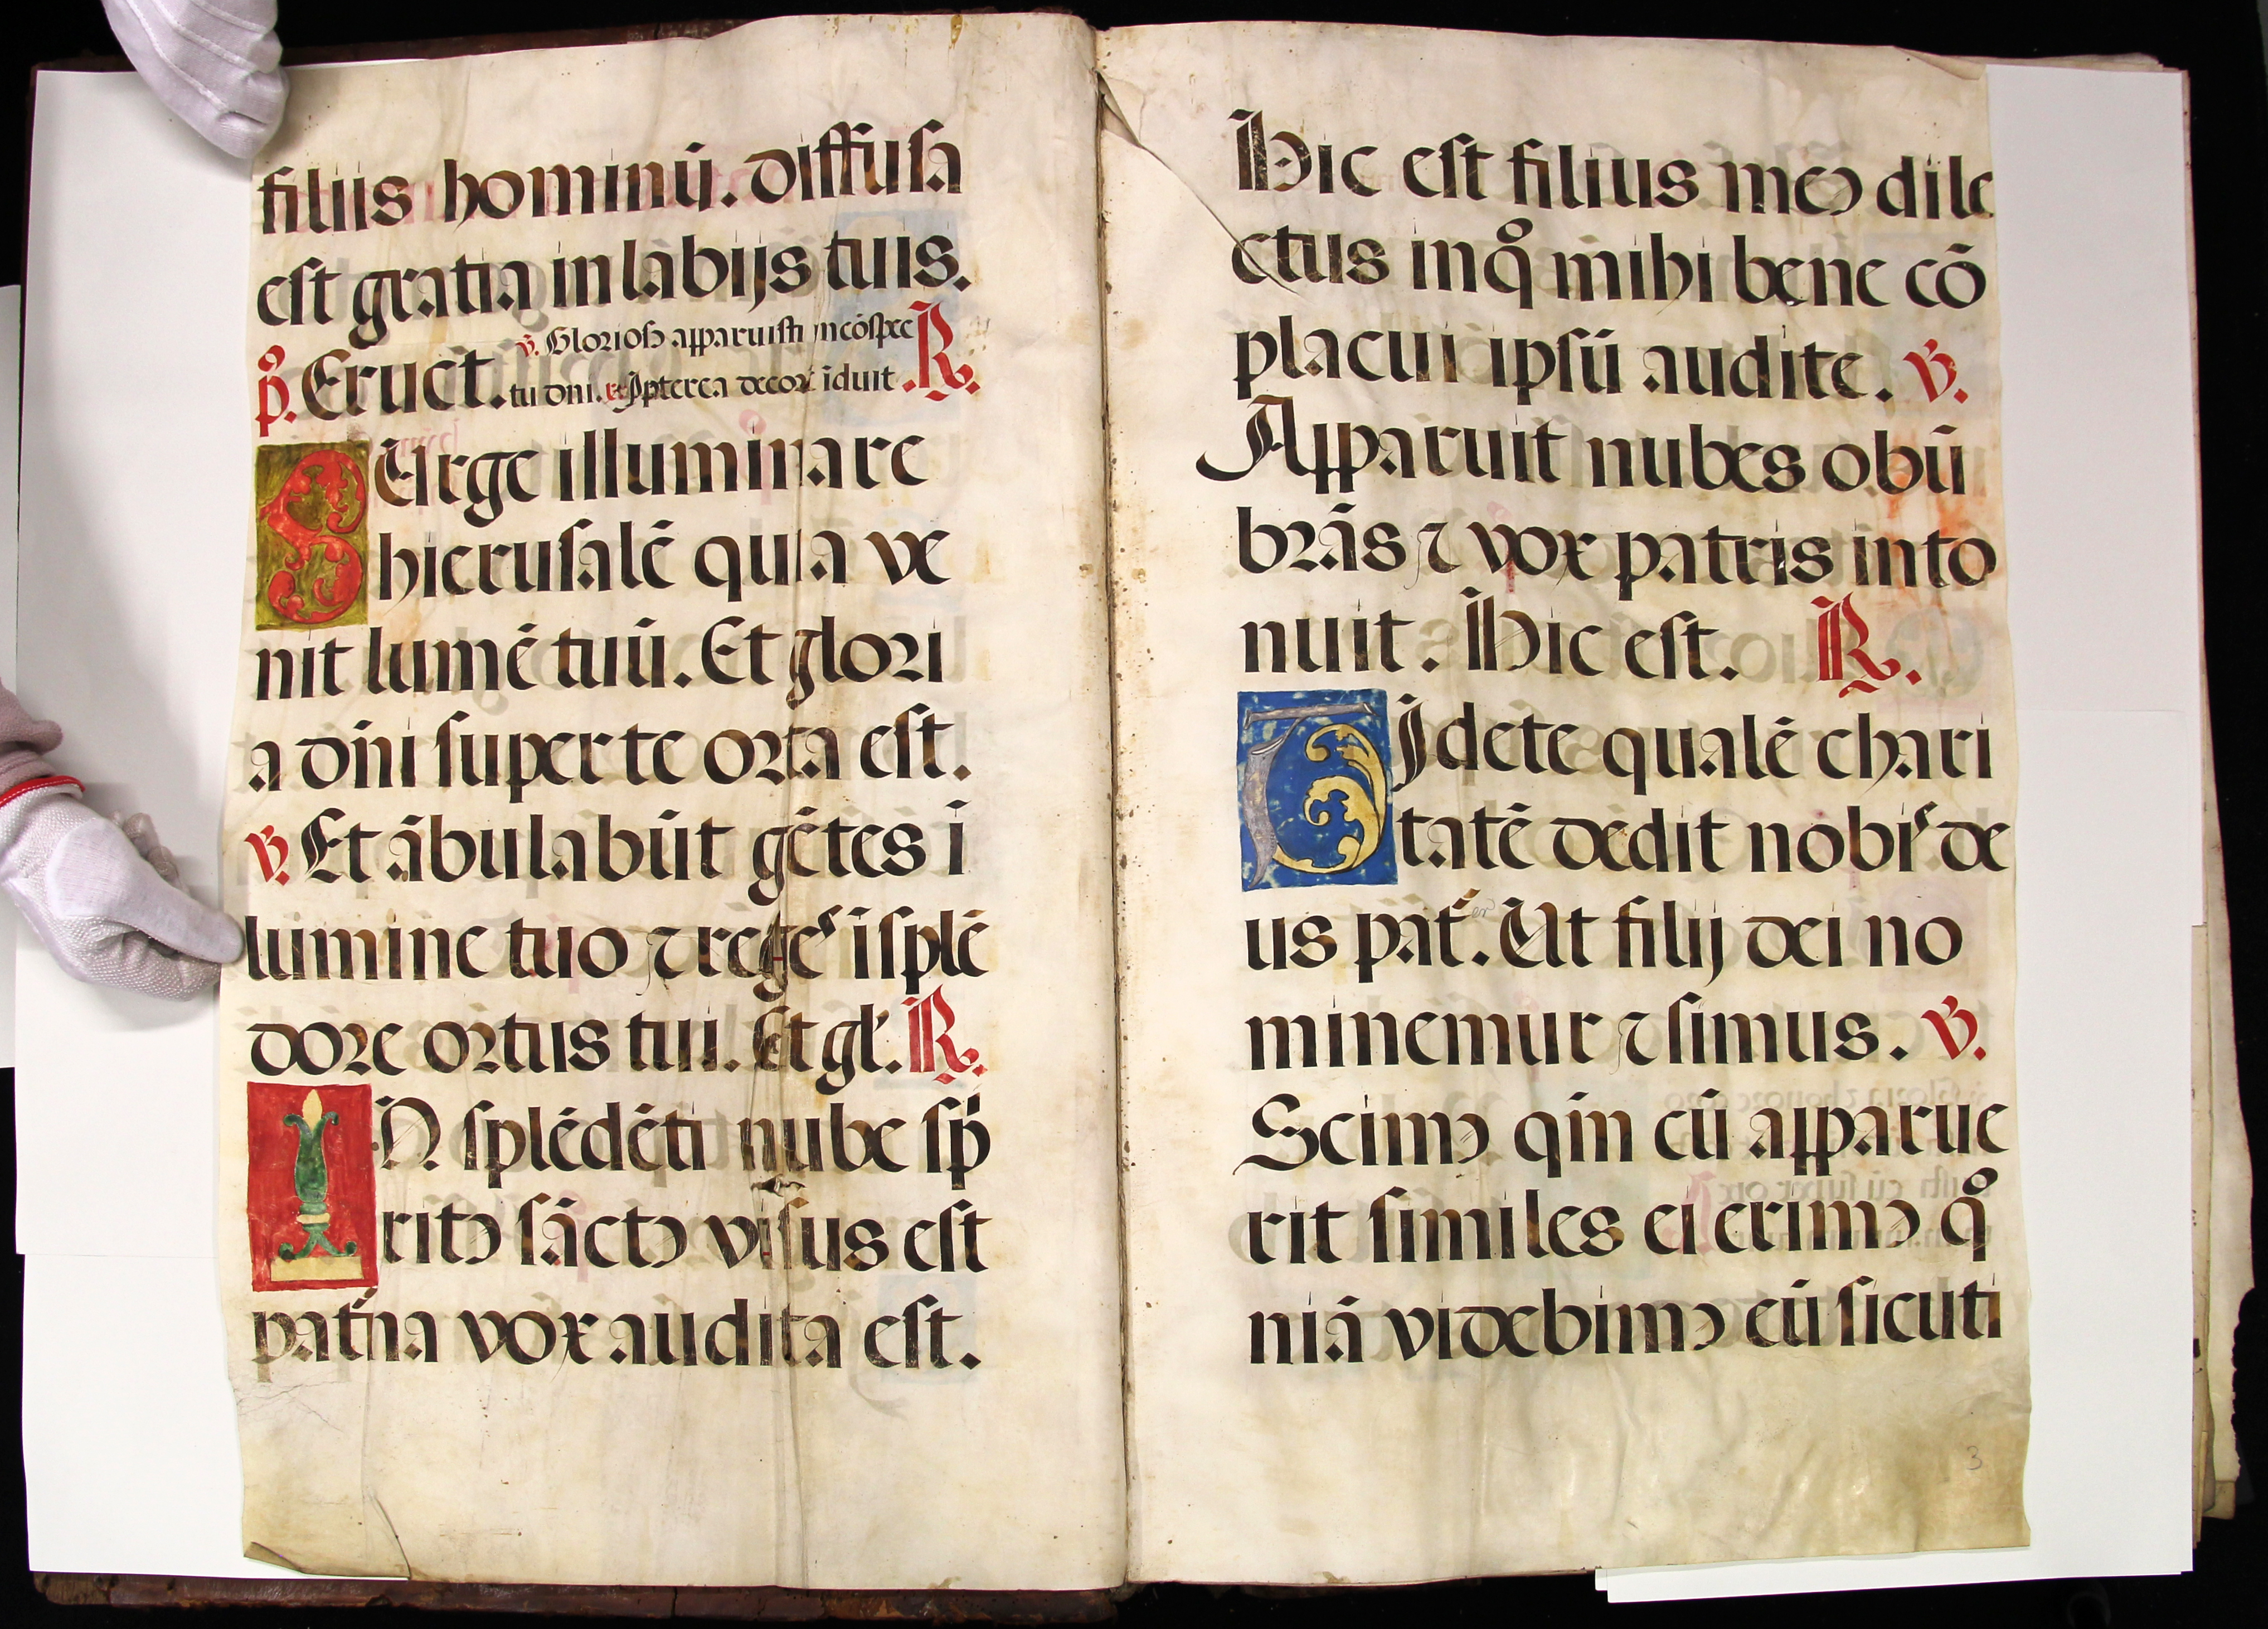 filiis hominū. diffusa
est gratia in labijs tuis.
℣. Gloriose apparuisti in cōspec
p̊. Eruct̄. tu dn̄i. ꝛc̄ Ꝓpterea decorē īduit. ℟.
SUrge illuminare
hierusalē quia ve
nit lumē tuū. Et glori
a dn̄i super te orta est.
℣. Et ābulabūt gētes ī
lumine tuo ⁊ rēges īsplē
dore ortus tui. Et gl̄. ℟.
IN splēdēti nube sp̄
ritꝰ sāctꝰ visus est
pat̄na vox audita est.
Hic est filius meꝰ dile
ctus in q̊ mihi bene cō
placui ipsū audite. ℣.
Apparuit nubes obū
brās ⁊ vox patris into
nuit. Hic est. ℟.
VIdete qualē chari
tatē dedit nobis de
us pat̄. er Ut filij dei no
minemur ⁊ simus. ℣.
Scimꝰ qm̄ cū apparue
rit similes ei erimꝰ q̊
niā videbimꝰ eū sicuti
3